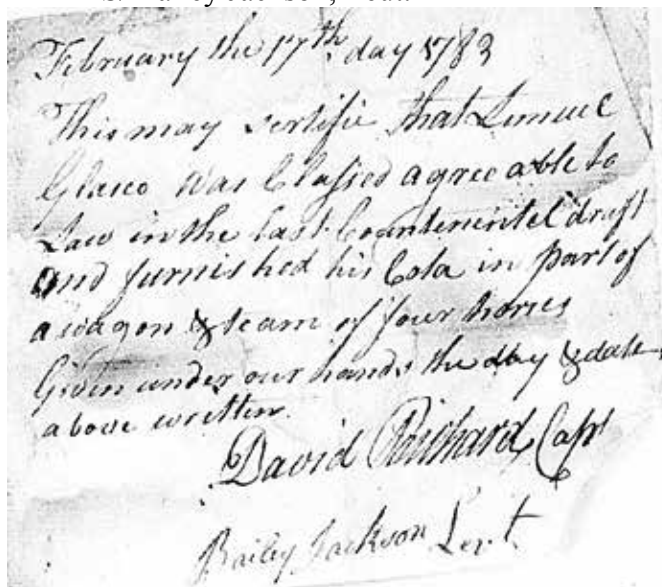 February the 17th day 1783
This may sertifie that Lemuel
Glasco was Classed agreeable to
Law in the last Countenentel draft
and furnished his Cota in part of
a wagon & team of four horses
Given under our hands the day & date
above written.
David Prichard, Capt
Bailey Jackson Levt